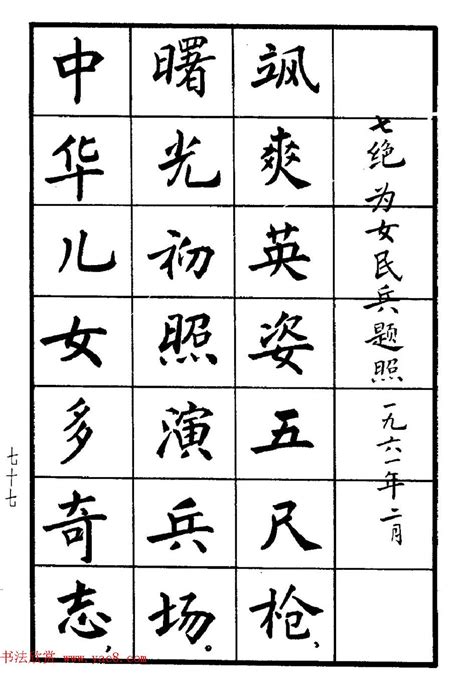 七绝 为女民兵题照 一九六一年二月
飒爽英姿五尺枪，
曙光初照演兵场。
中华儿女多奇志，
七十七
书法欣赏 www.yac8.com